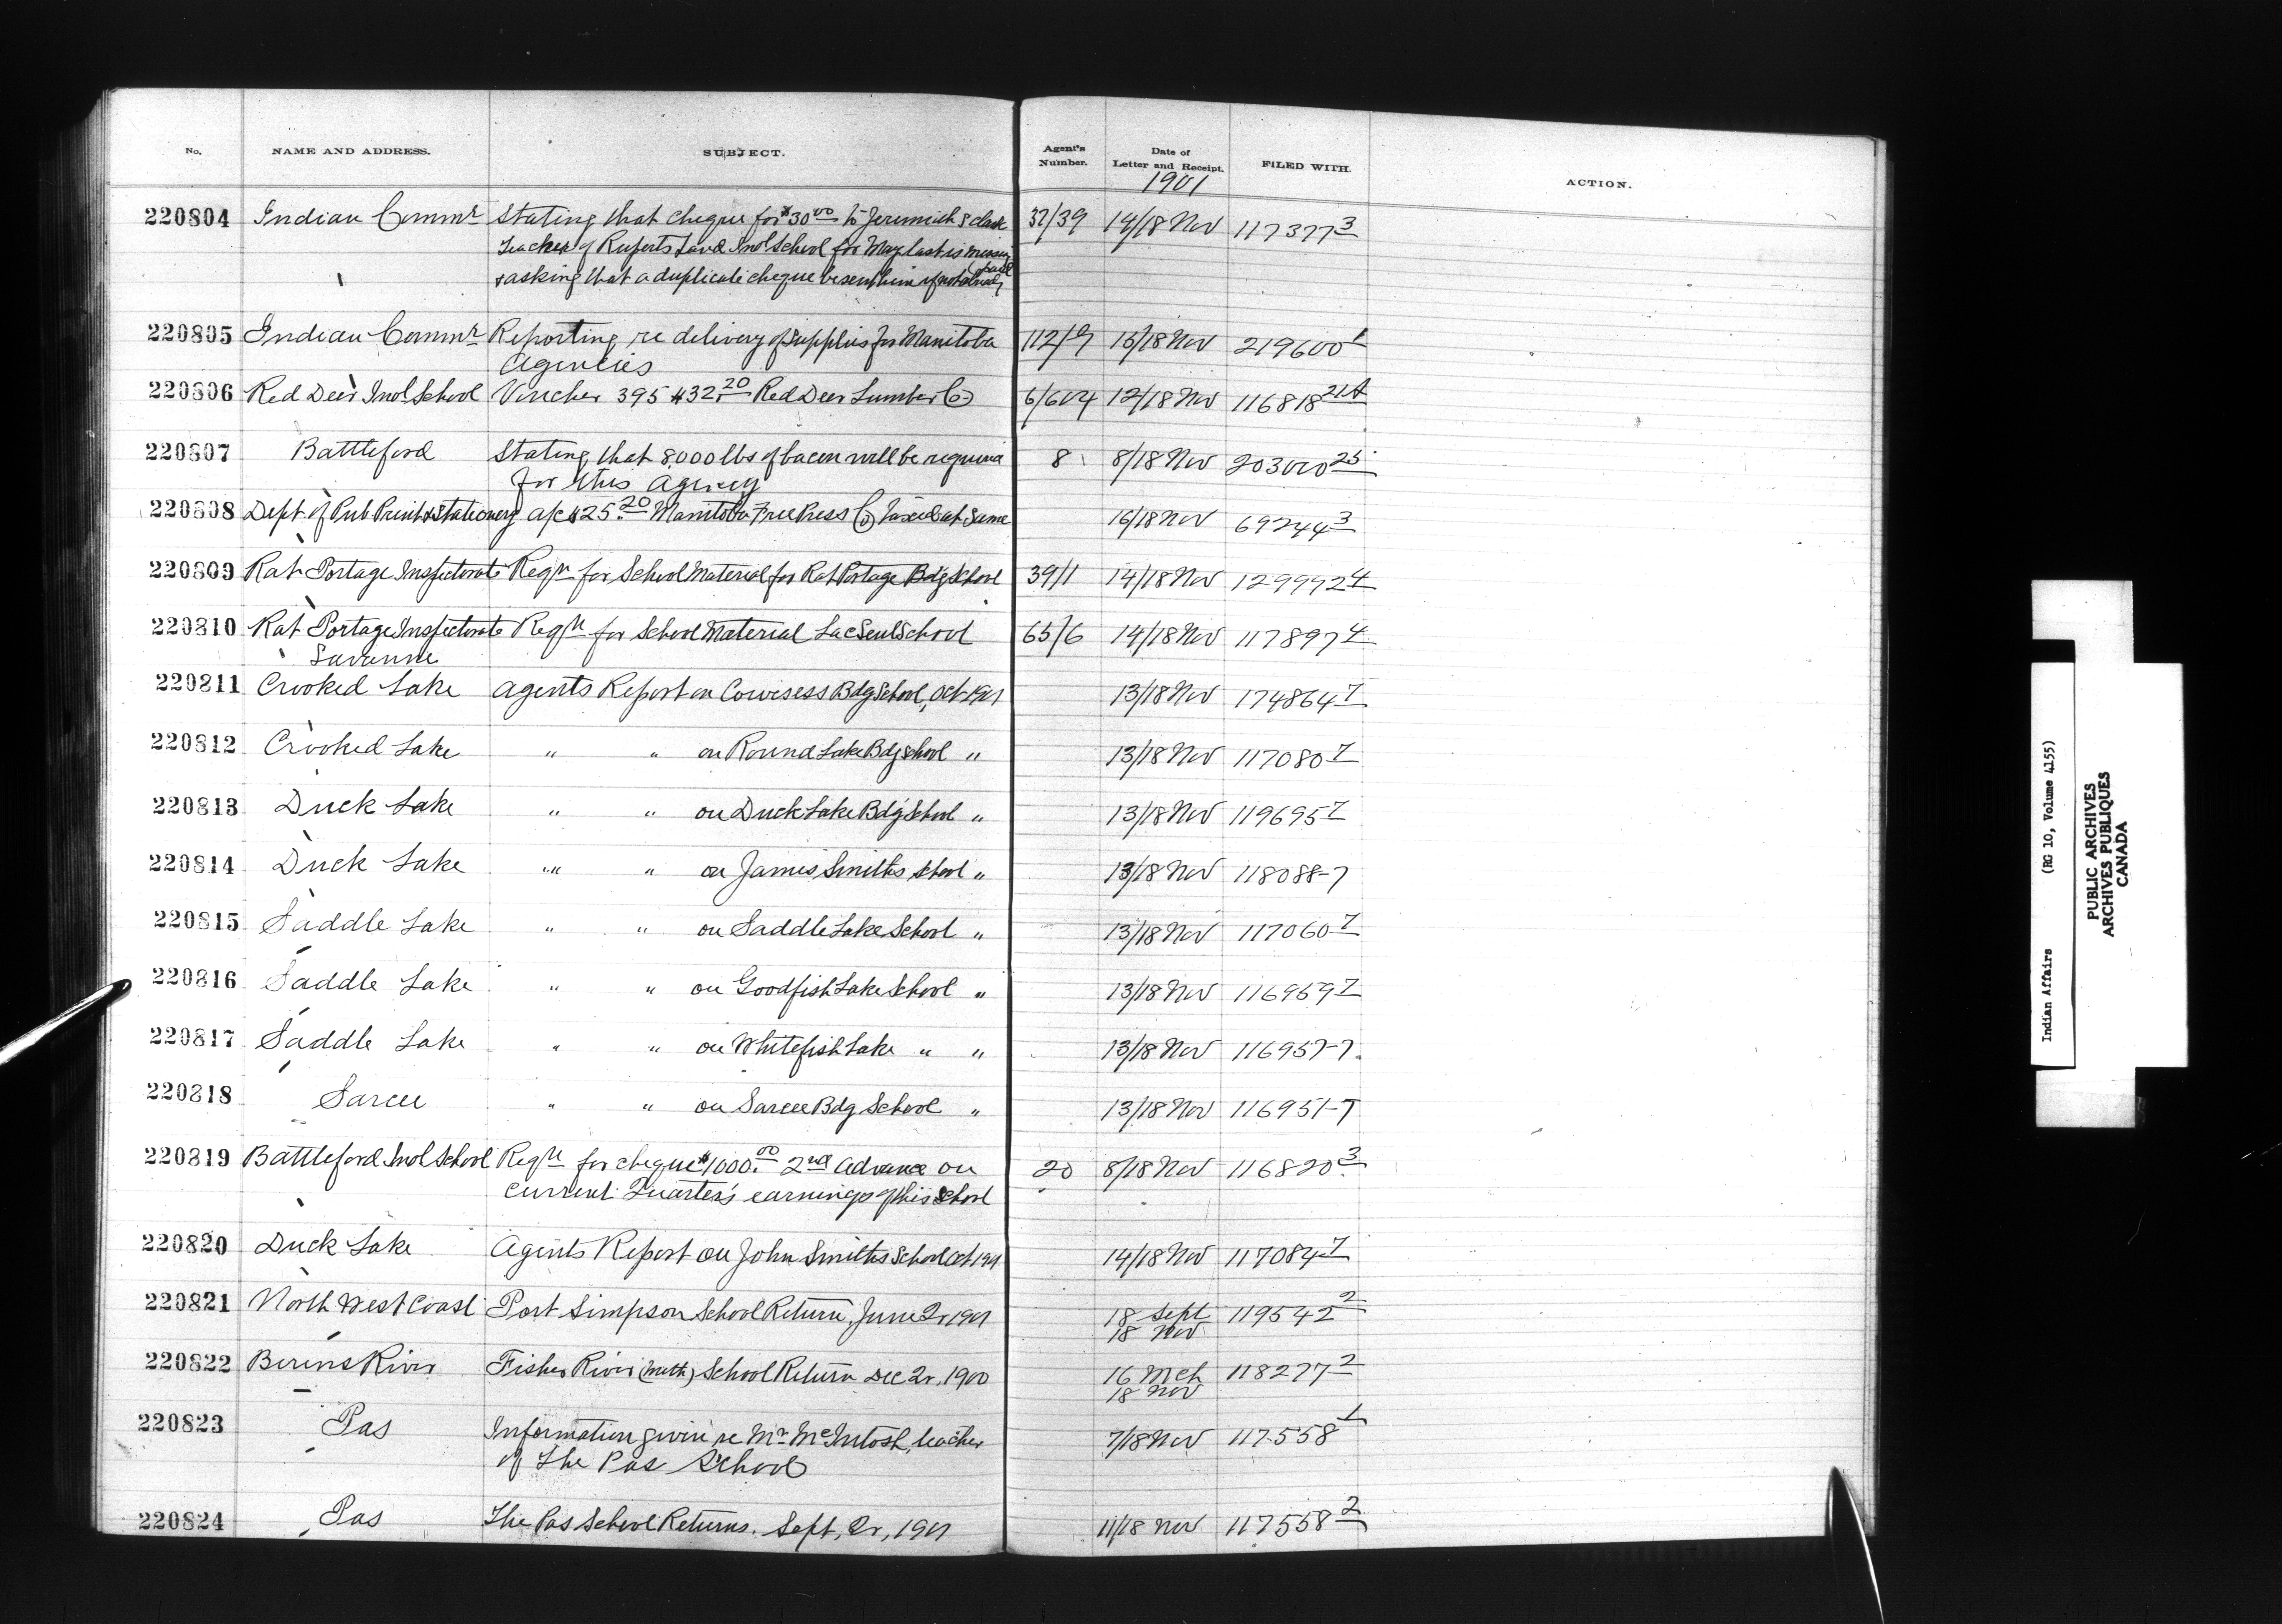 No. NAME AND ADDRESS. SUBJECT. Agent's Number. Date of Letter and Receipt. FILED WITH. ACTION.
1901
220804 Indian Commr Stating that cheque for $30.00 to Jeremiah 32/39 14/18 Nov 117377 3
teacher of Ruperts Land Indl School for May last is missing
& asking that a duplicate cheque be sent him if not already
220805 Indian Commr Reporting re delivery of supplies for Manitoba 112/9 15/18 Nov 219600 1
Agencies
220806 Red Deer Indl School Voucher 395 $32.20 Red Deer Lumber Co 6/604 12/18 Nov 116818 21A
220807 Battleford Stating that 8000 lbs of bacon will be required 8 8/18 Nov 203000 25
for this Agency
220808 Dept of Pub Print & Stationery a/c $25.20 Manitoba Free Press Co Taxed at Same 16/18 Nov 69244 3
220809 Rat Portage Inspectorate Reqn for School Material for Rat Portage Bdg School 39/1 14/18 Nov 129992 4
220810 Rat Portage Inspectorate Reqn for School Material Lac Seul School 65/6 14/18 Nov 117897 4
Savanne
220811 Crooked Lake Agents Report on Cowesess Bdg School, Oct 1901 13/18 Nov 174864 7
220812 Crooked Lake " " on Round Lake Bdg School " 13/18 Nov 117080 7
220813 Duck Lake " " on Duck Lake Bdg School " 13/18 Nov 119695 7
220814 Duck Lake " " on James Smiths School " 13/18 Nov 118088-7
220815 Saddle Lake " " on Saddle Lake School " 13/18 Nov 117060 7
220816 Saddle Lake " " on Goodfish Lake School " 13/18 Nov 116959 7
220817 Saddle Lake " " on Whitefish Lake " " 13/18 Nov 116957-7
220818 Sarcee " " on Sarcee Bdg School " 13/18 Nov 116951-7
220819 Battleford Indl School Reqn for cheque $1000.00 2nd Advance on 20 8/18 Nov 116820 3
current Quarter's earnings of this School
220820 Duck Lake Agents Report on John Smiths School Oct 1901 14/18 Nov 117084 7
220821 North West Coast Port Simpson School Return, June Qr 1901 18 Sept 119542 2
18 Nov
220822 Berens River Fisher River (Meth) School Return Dec Qr, 1900 16 Mch 118277 2
18 Nov
220823 Pas Information given re Mr McIntosh, teacher 7/18 Nov 117558 1
of The Pas School
220824 Pas The Pas School Returns. Sept, Qr, 1901 11/18 Nov 117558 2
Indian Affairs (RG 10, Volume 4155)
PUBLIC ARCHIVES
ARCHIVES PUBLIQUES
CANADA